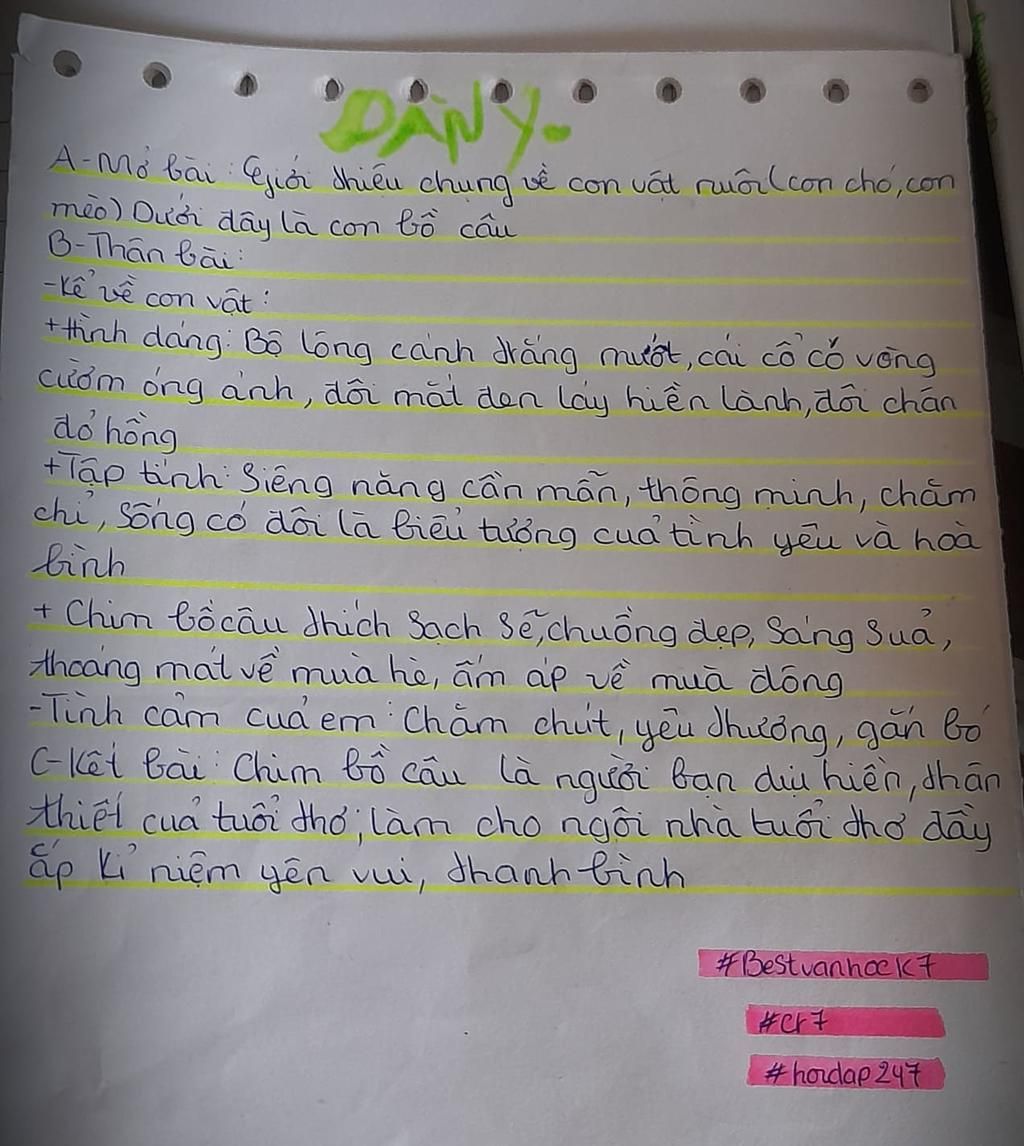 DÀN Ý.
A-Mở bài: Giới thiệu chung về con vật nuôi (con chó, con
mèo) Dưới đây là con bồ câu
B-Thân bài:
-Kể về con vật:
+Hình dáng: Bộ lông cánh trắng mướt, cái cổ có vòng
cườm óng ánh, đôi mắt đen láy hiền lành, đôi chân
đỏ hồng
+Tập tính: Siêng năng cần mẫn, thông minh, chăm
chỉ, Sống có đôi là biểu tượng của tình yêu và hoà
bình
+ Chim bồ câu thích Sạch Sẽ, chuồng đẹp, Sáng Suả,
thoáng mát về mùa hè, ấm áp về mùa đông
-Tình cảm của em: Chăm chút, yêu thương, gắn bó
C-Kết bài: Chim bồ câu là người bạn dịu hiền, thân
thiết của tuổi thơ, làm cho ngôi nhà tuổi thơ đầy
ắp kỉ niệm yên vui, thanh bình
#BestvanhocK7
#Cr7
#hoidap247